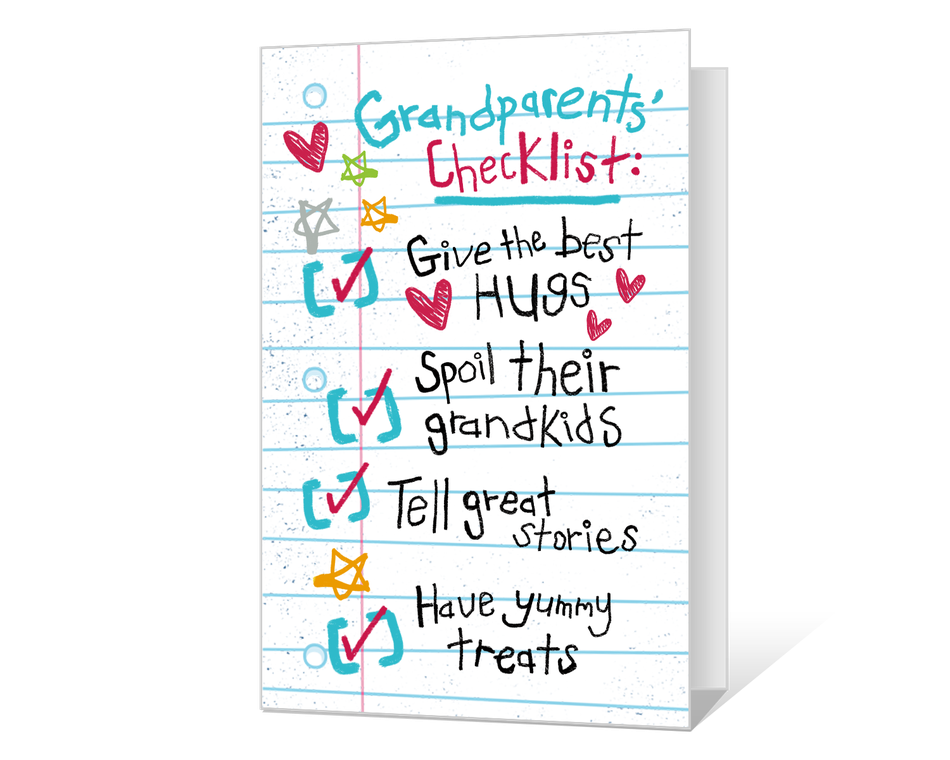 Grandparents'
Checklist:
Give the best
HUgS
Spoil their
grandkids
Tell great
stories
Have yummy
treats